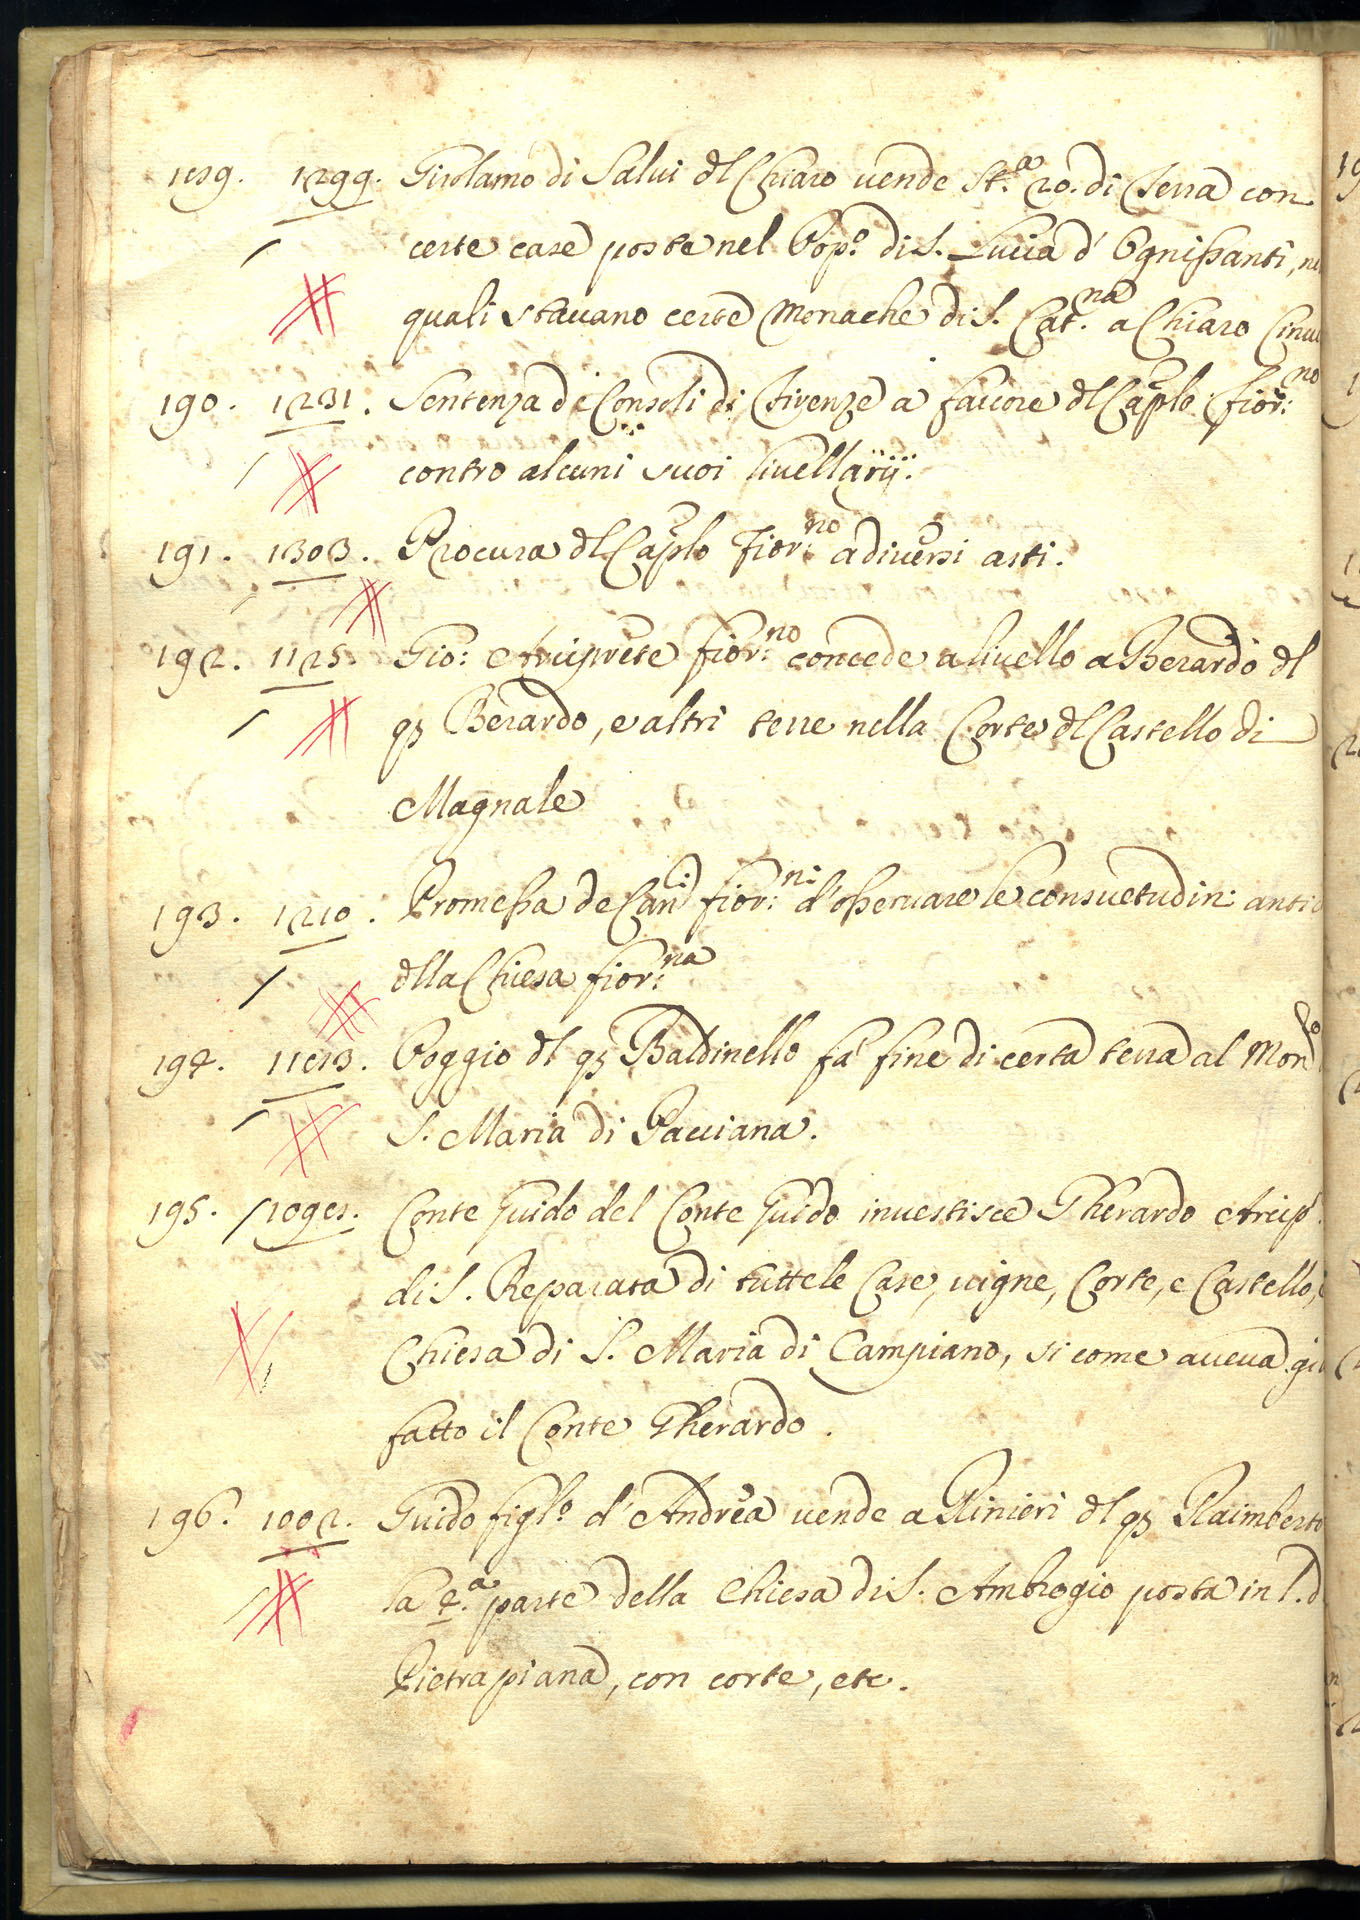 189. 1299. Girolamo di Salvi dl Chiaro vende St.a 20. di Terra con
certe case poste nel Pop.o di S. Lucia d' Ognissanti,
quali stavano certe Monache di S. Cat.na a Chiaro
190. 1231. Sentenza de Consoli di Firenze a favore dl Caplo Fior:no
contro alcuni suoi livellarij.
191. 1303. Procura dl Caplo Fior:no a diversi atti.
192. 1125. Gio: Arciprete fior:no concede a livello a Berardo dl
q3 Berardo, e altri terre nella Corte dl Castello di
Magnale
193. 1210. Promessa de Can.ci fior:ni d'osservare le consuetudin:
dlla Chiesa fior:na
194. 1183. Poggio dl q3 Baldinello fa fine di certa terra al Mon.ro
S. Maria di Pacciana.
195. 1098. Conte Guido del Conte Guido investisce Gherardo Arcip.
di S. Reparata di tutte le Case, vigne, Corte, e Castello,
Chiesa di S. Maria di Campiano, si come aveva
fatto il Conte Gherardo.
196. 1002. Guido figl.o d' Andrea vende a Rinieri dl q3 Raimberto
la 4.a parte della Chiesa di S. Ambrogio posta in l. d
Pietrapiana, con corte, etc.